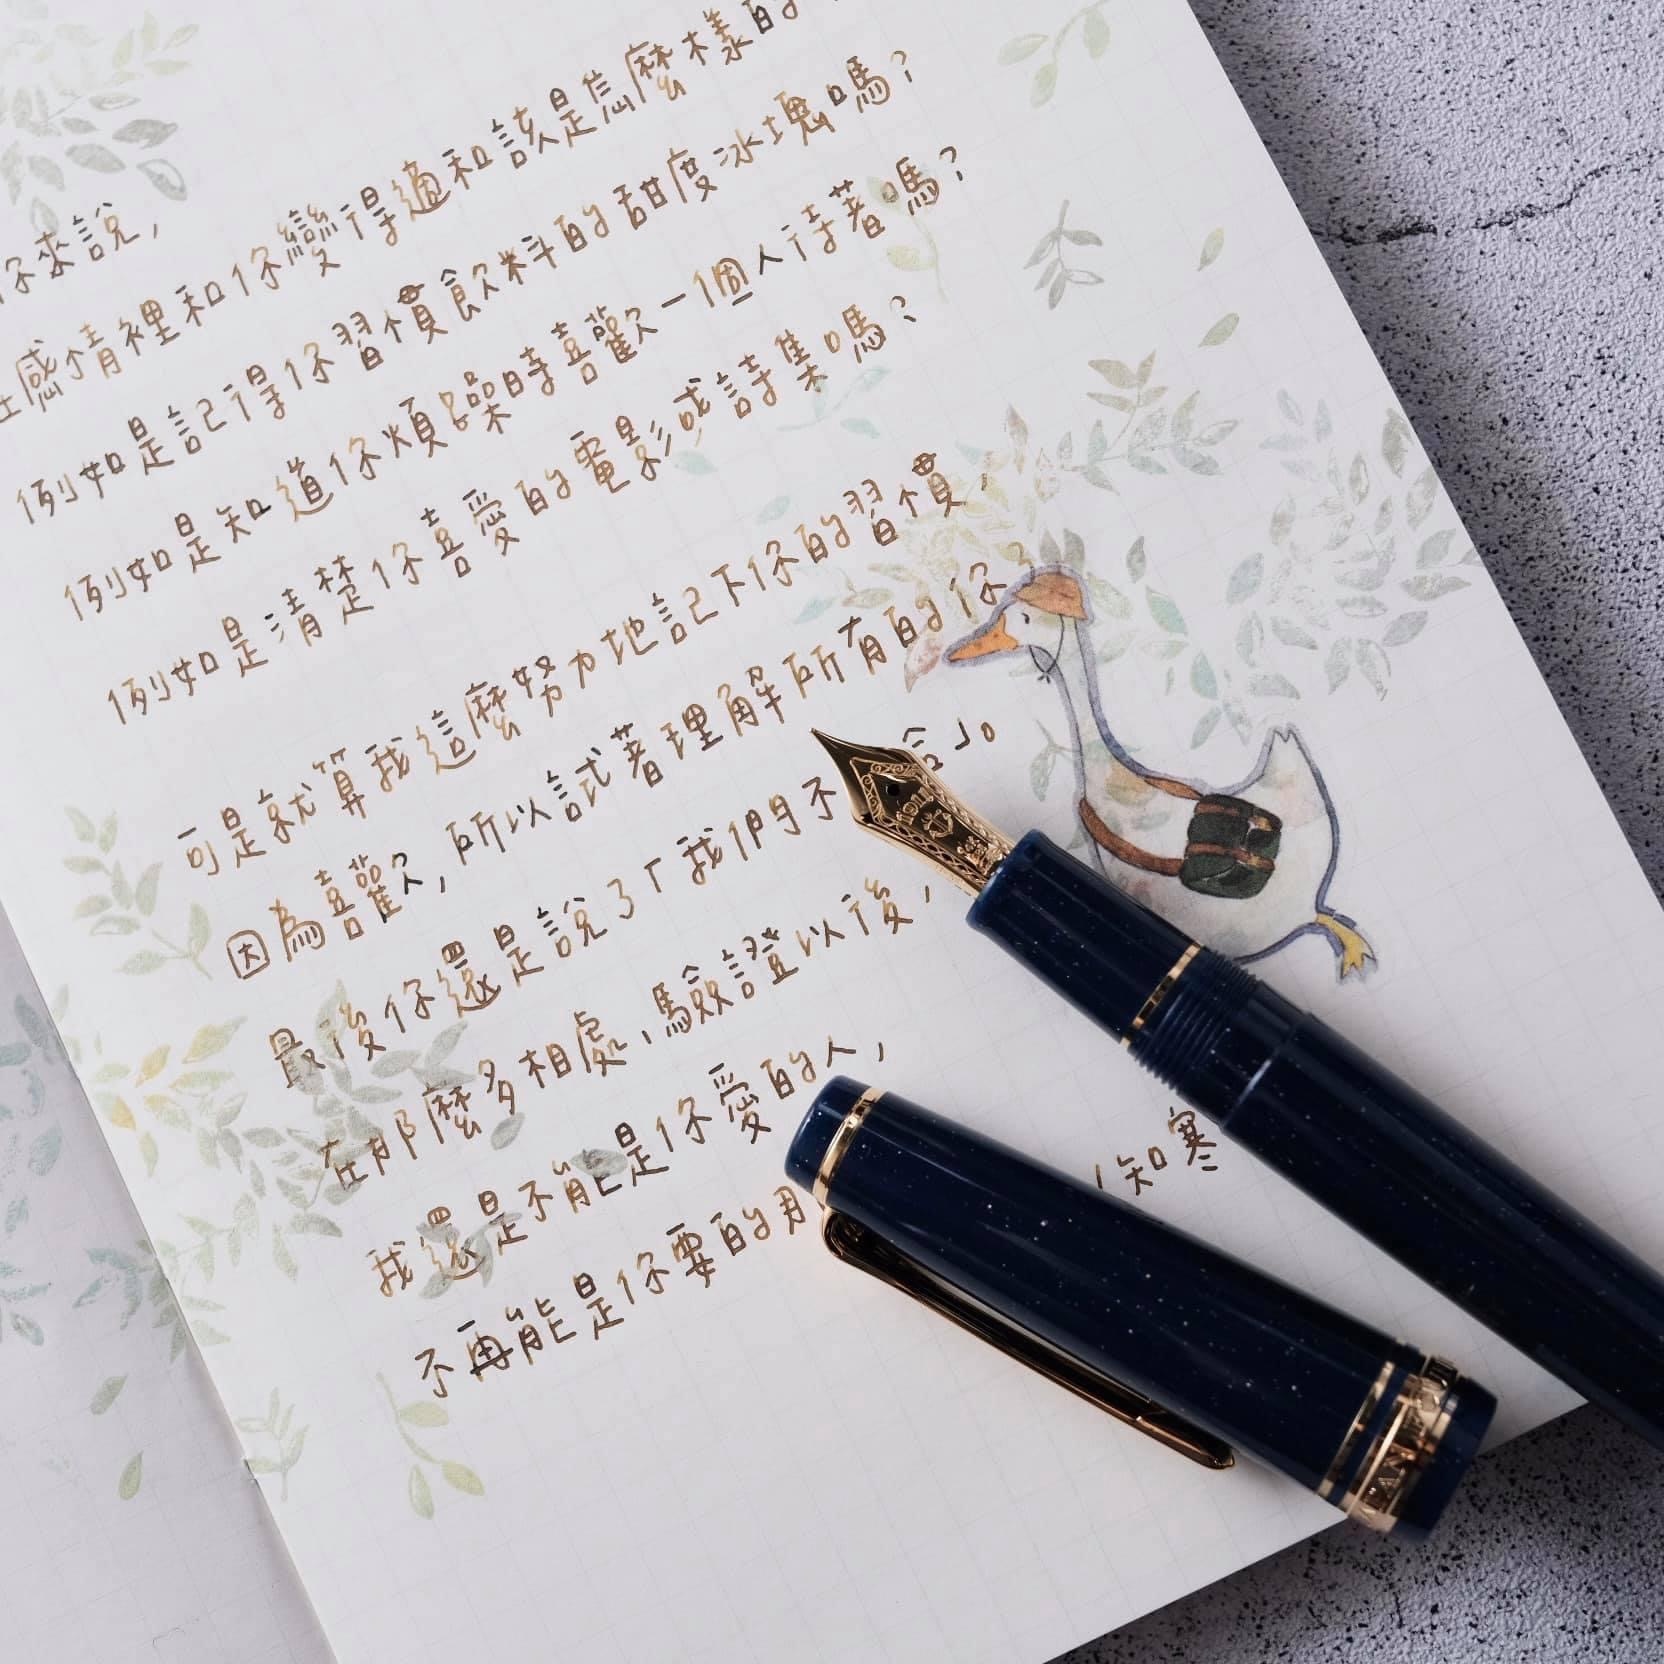 你來說，
在感情裡和你變得適和該是怎麼樣的
例如是記得你習慣飲料的甜度冰塊嗎？
例如是知道你煩躁時喜歡一個人待著嗎？
例如是清楚你喜愛的電影或詩集嗎？
可是就算我這麼努力地記下你的習慣，
因為喜歡，所以試著理解所有的你，
最後你還是說了「我們不合」。
在那麼多相處、驗證以後，
我還是不能是你愛的人，
不再能是你要的
知寒